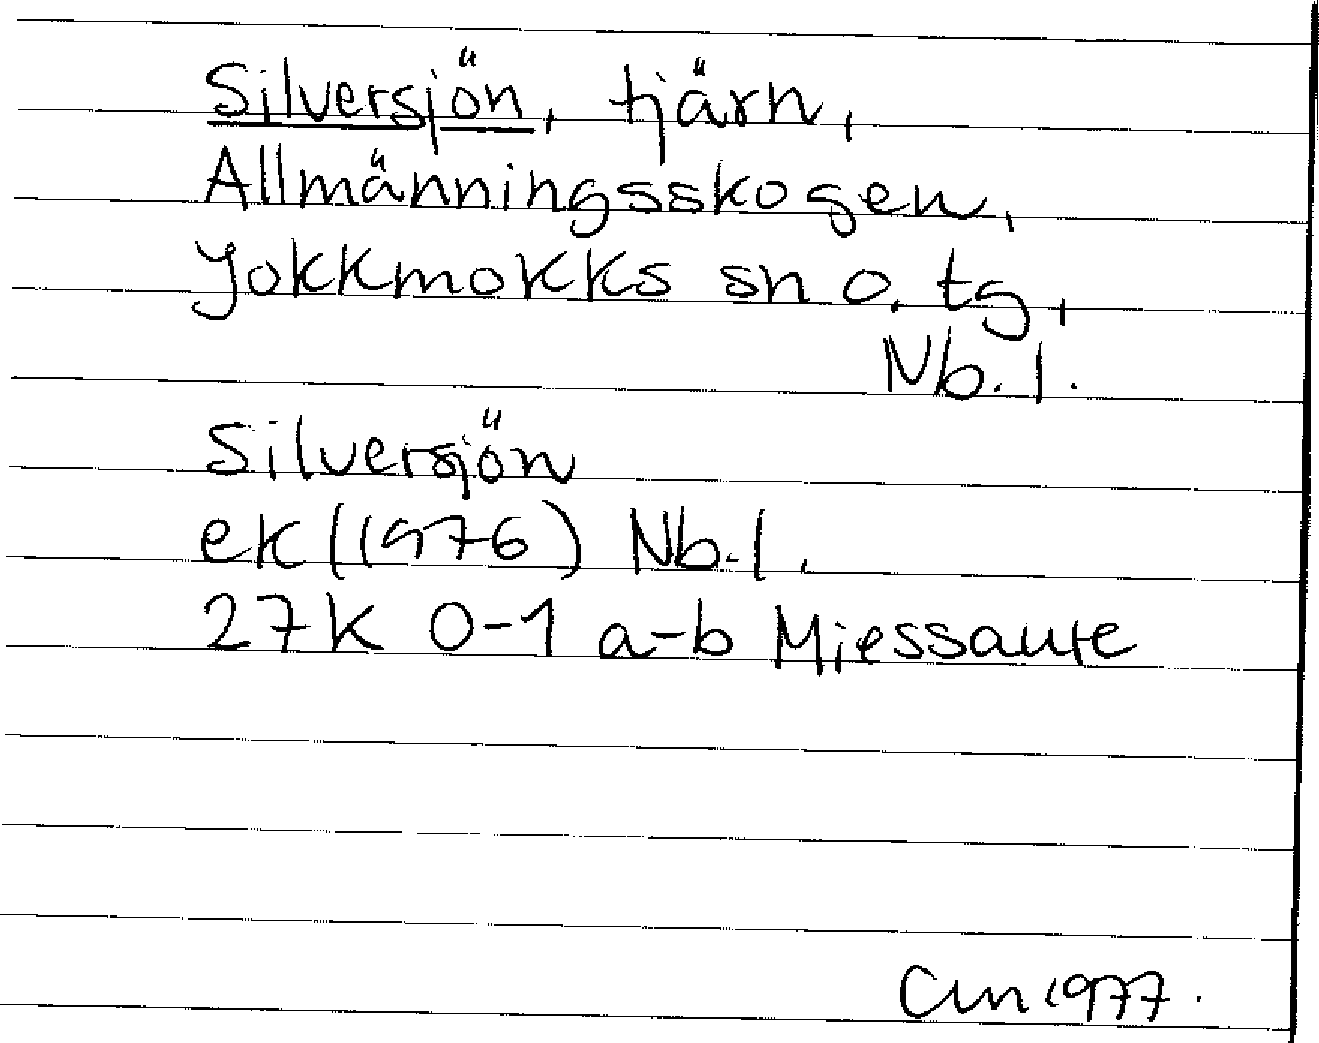 Silversjön, tjärn,
Allmänningsskogen,
Jokkmokks sn o. tg,
Nb. l.
Silversjön
ek (1976) Nb. l.
27K 0-1 a-b Miessaure
1977.